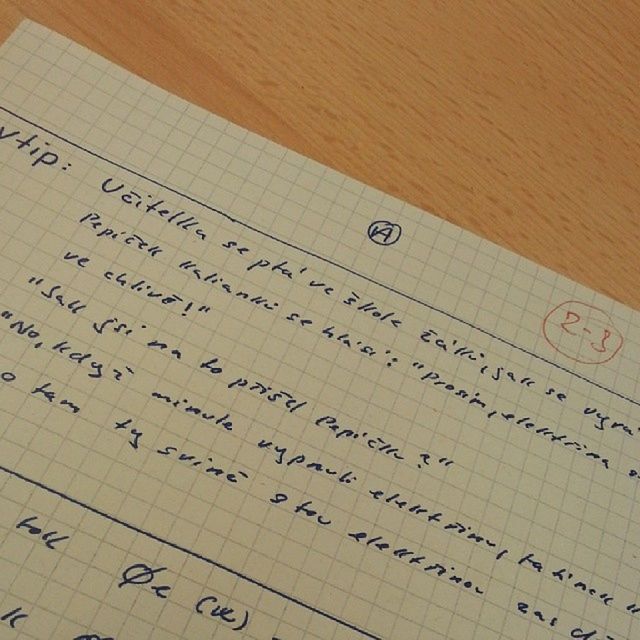 A
2-3
vtip: Učitelka se ptá ve škole žáků, jak se vyrá
Pepíček Kalianků se hlásí: "prosím, elektřina se
ve chlívě!"
"Jak jsi na to přišel Pepíčku?"
"No, když minule vypnuli elektřinu, tatínek
o tam ty svině s tou elektřinou zas
tok Φe (ve)